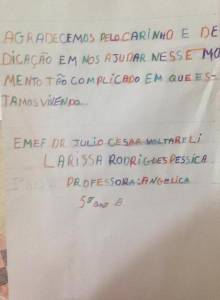 AGRADECEMOS PELO CARINHO E DE
DICAÇÃO EM NOS AJUDAR NESSE MO
MENTO TÃO COMPLICADO EM QUE ES-
TAMOS VIVENDO...
EMEF DR JULIO CESAR VOLTARELI
LARISSA RODRIGUES PESSICA
PROFESSORA: ANGELICA
5º ano B